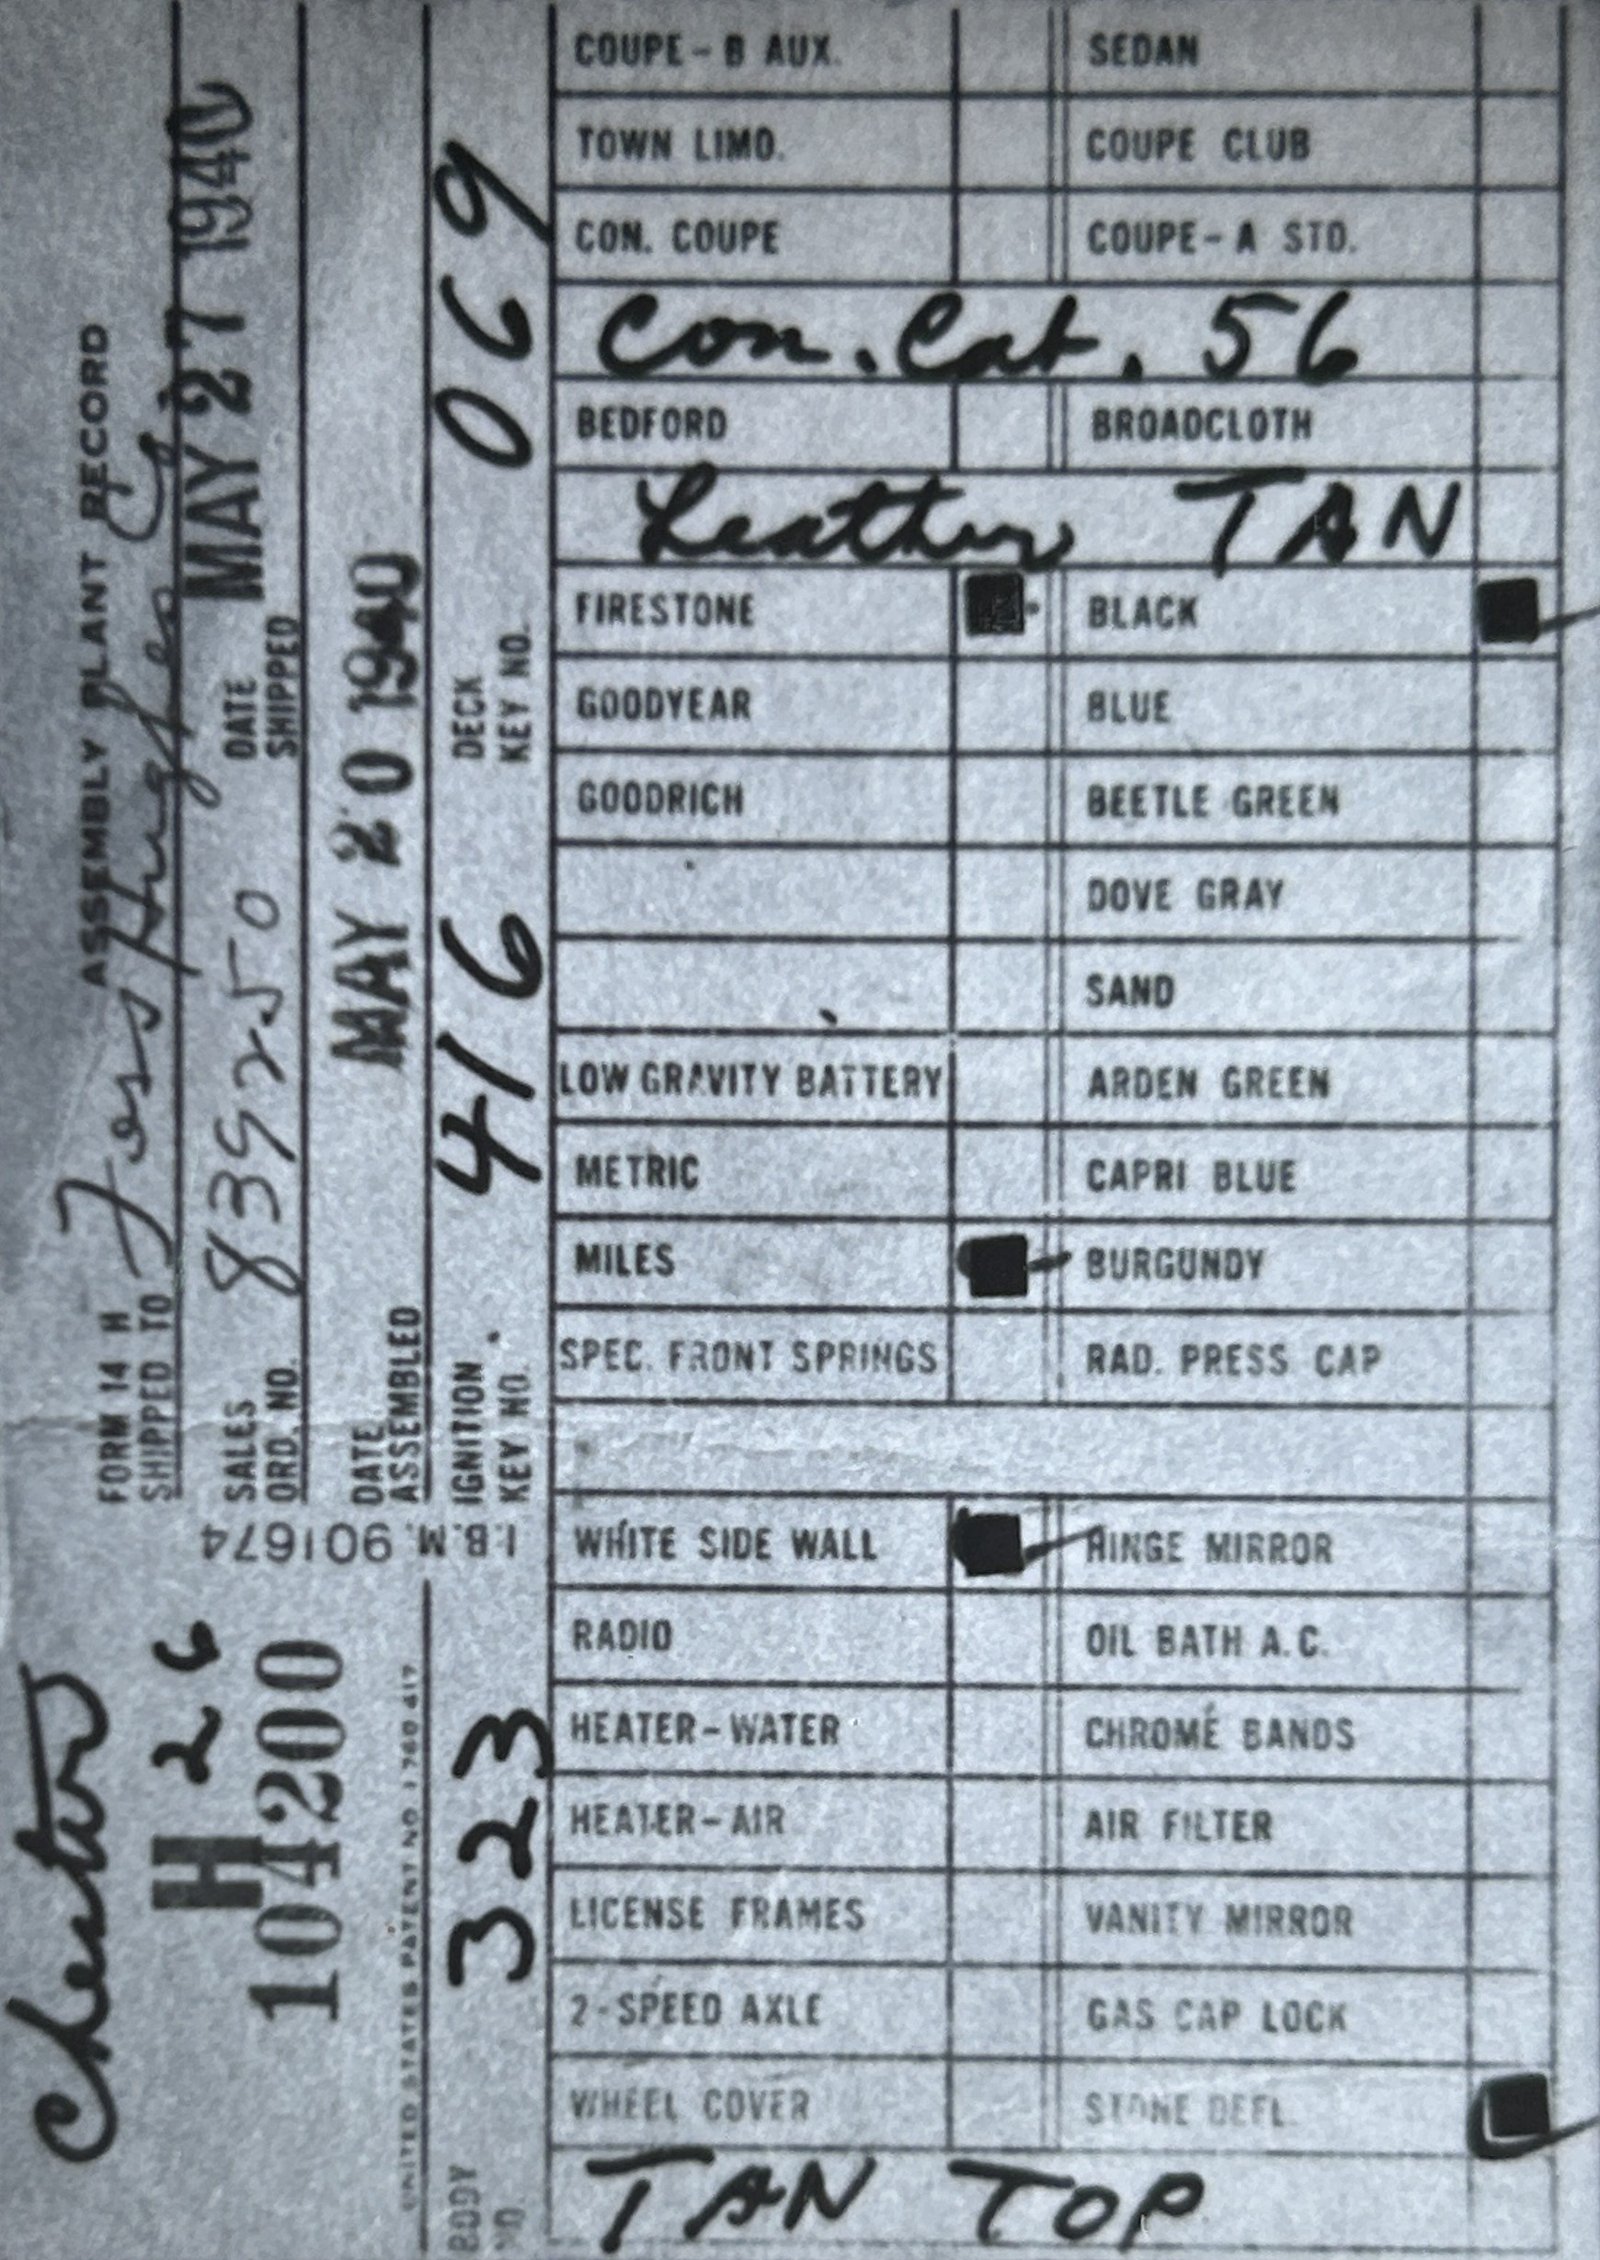 FORM 14 H ASSEMBLY PLANT RECORD
SHIPPED TO Foss Hughes
SALES ORD. NO. 839250 DATE SHIPPED MAY 27 1940
DATE ASSEMBLED MAY 20 1940
IGNITION KEY NO. 416 DECK KEY NO. 069
I.B.M. 901674
H 26
104200
UNITED STATES PATENT NO. 1 760 417
BODY NO. 323
COUPE-B AUX. SEDAN
TOWN LIMO. COUPE CLUB
CON. COUPE COUPE-A STD.
Con. Cab. 56
BEDFORD BROADCLOTH
Leather TAN
FIRESTONE BLACK
GOODYEAR BLUE
GOODRICH BEETLE GREEN
DOVE GRAY
SAND
LOW GRAVITY BATTERY ARDEN GREEN
METRIC CAPRI BLUE
MILES BURGUNDY
SPEC. FRONT SPRINGS RAD. PRESS CAP
WHITE SIDE WALL HINGE MIRROR
RADIO OIL BATH A.C.
HEATER-WATER CHROME BANDS
HEATER-AIR AIR FILTER
LICENSE FRAMES VANITY MIRROR
2-SPEED AXLE GAS CAP LOCK
WHEEL COVER STONE DEFL.
TAN TOP